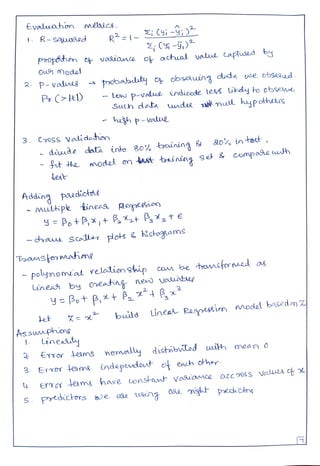 Evaluation metrics.
1. R-squared R² = 1 - Σi (yi - ŷi)² / Σi (yi - ȳi)²
proportion of variance of actual value captured by
our model
2. p-values → probability of observing data we observed
Pr (>|t|) - low p-value indicate less likely to observe
such data under null hypothesis
- high p-value
3. Cross Validation
- divide data into 80% training & 20% in test,
- fit the model on training set & compare with
test
Adding predictors
- multiple linear Regression
y = β₀ + β₁x₁ + β₂x₂ + β₃x₃ + ε
- draw scatter plots & histograms
Transformations
- polynomial relationship can be transformed as
linear by creating new variables
y = β₀ + β₁x + β₂x² + β₃x³
let z = x² build Linear Regression model based on z
Assumptions
1. Linearity
2 Error terms normally distributed with mean 0
3. Error terms independent of each other
4 error terms have constant variance across values of x
5 predictors we are using are right predictors